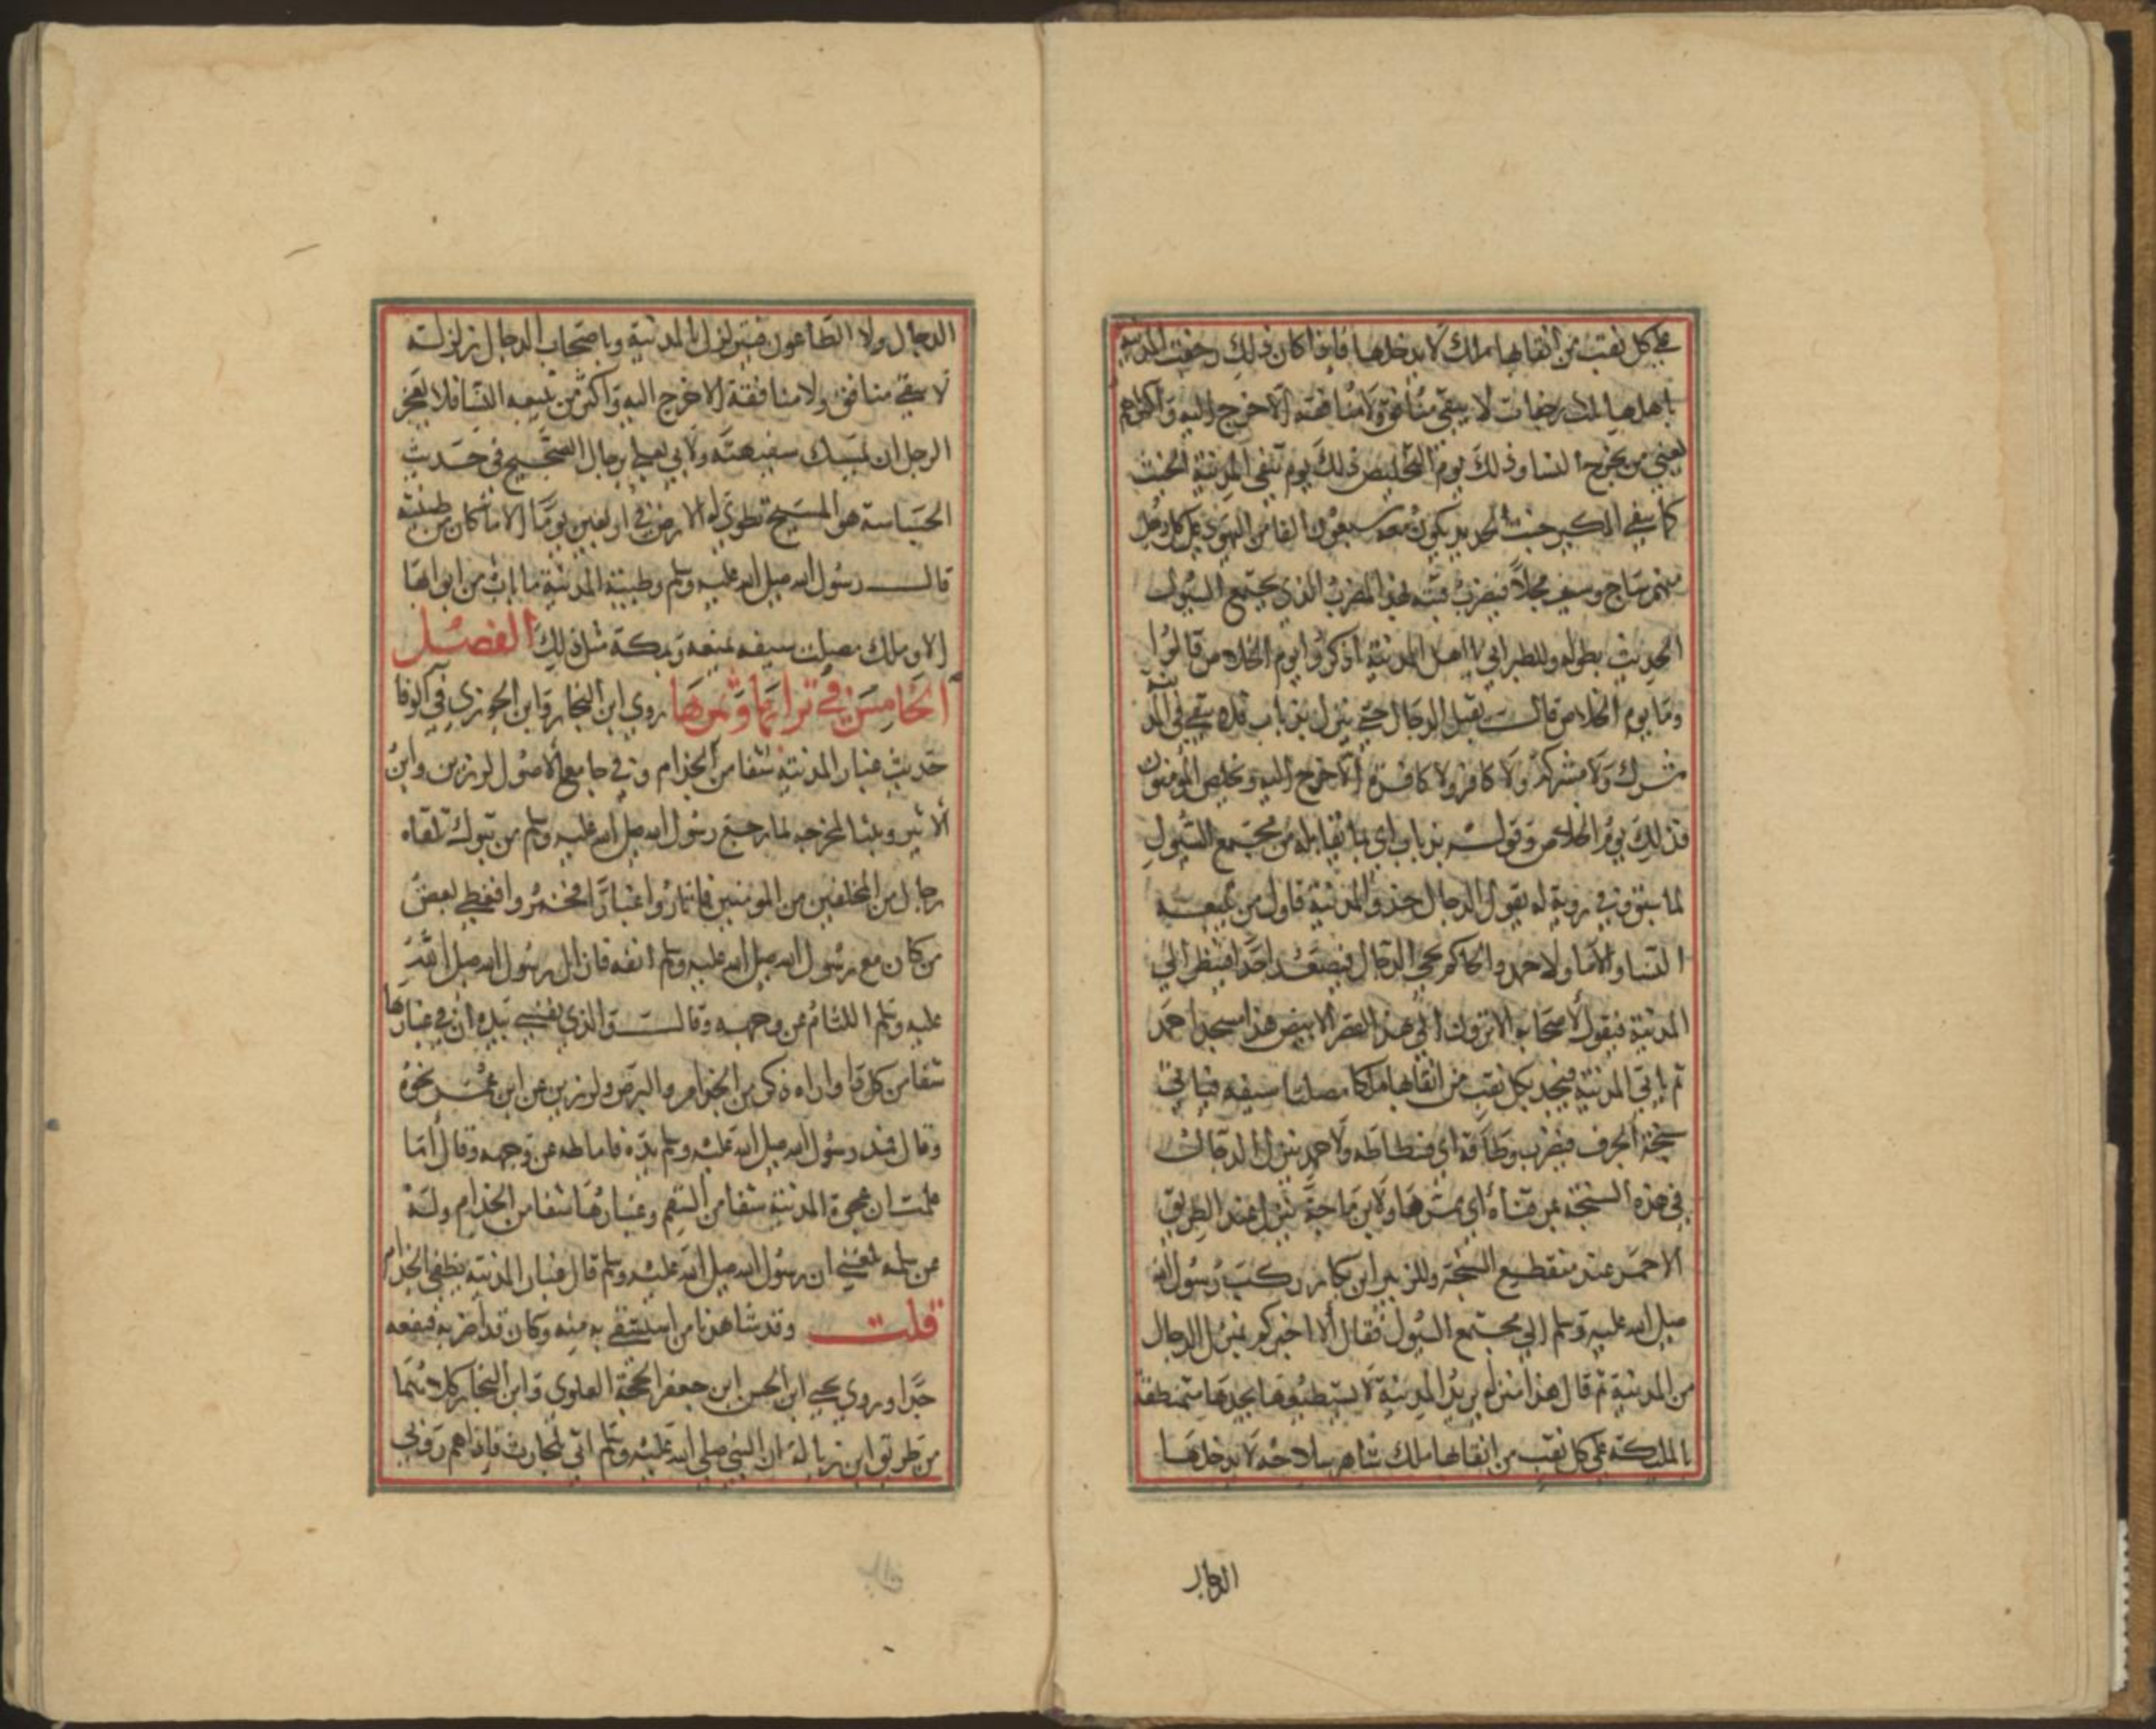 على كل نقب من انقابها ملك لا يدخلها فاذا كان ذلك رجفت المدينة
باهلها ثلاث رجفات لا يبقى منافق ولا منافقة الا خرج اليه واكثرهم
يعني من يخرج النسا وذلك يوم التخليص ذلك يوم تنفي المدينة الخبث
كما ينفي الكير خبث الحديد يكون معه سبعون الفا من اليهود على كل رجل
منهم ساج وسيف محلا فيضرب قبته بهذا المضرب الذي يجتمع السيول
الحديث بطوله وللطبراني يا اهل المدينة اذكروا يوم الخلاص قالوا
وما يوم الخلاص قال يقبل الدجال حتى ينزل بذباب فلا يبقى في المد
مشرك ولا مشركة ولا كافر ولا كافرة الا خرج اليه ويخلص المومنون
فذلك يوم الخلاص وقوله بذباب اي بما يقابله من مجتمع السيول
لما سبق وفي رواية له يقول الدجال خذوا المدينة فاول من يتبعه
النسا والاما ولاحمد والحاكم يجي الدجال فيصعد احدا فينظر الى
المدينة فيقول لاصحابه الا ترون الى هذا القصر الابيض هذا مسجد احمد
ثم ياتي المدينة فيجد بكل نقب من انقابها ملكا مصلتا سيفه فياتي
سبخة الجرف فيضرب رواقه اي فسطاطه ولاحمد ينزل الدجال
في هذه السبخة عن قناة اي ممرها ولابن ماجة ينزل عند الطريق
الاحمر عند منقطع السبخة وللزبير ابن بكار ركب رسول الله
صلى الله عليه وسلم الى مجتمع السيول فقال الا اخبركم بمنزل الدجال
من المدينة ثم قال هذا منزله يريد المدينة لا يستطيعها يجدها متمنطقة
بالملئكة على كل نقب من انقابها ملك شاهر سلاحه لا يدخلها
الدجال
الدجال ولا الطاعون فيتزلزل المدينة وباصحاب الدجال زلزلة
لا يبقى منافق ولا منافقة الا خرج اليه واكثر من يتبعه النسا فلا يعجز
الرجل ان يمسك سفيهته ولابي يعلى برجال الصحيح في حديث
الجساسة هو المسيح تطوى له الارض في اربعين يوما الا ما كان من طيبة
قال رسول الله صلى الله عليه وسلم وطيبة المدينة ما باب من ابوابها
الا وملك مصلت سيفه يمنعه وبمكة مثل ذلك الفصل
الخامس في ترابها وثمرها روى ابن النجار وابن الجوزي في الوفا
حديث غبار المدينة شفا من الجذام وفي جامع الاصول لرزين وابن
الاثير وبينا لمخرجه لما رجع رسول الله صلى الله عليه وسلم من تبوك تلقاه
رجال من المخلفين من المومنين فاثاروا غبارا فخمروا فغطى بعض
من كان مع رسول الله صلى الله عليه وسلم انفه فازال رسول الله صلى الله
عليه وسلم اللثام عن وجهه وقال والذي نفسي بيده ان في غبارها
شفا من كل دا واراه ذكر من الجذام والبرص ولرزين عن ابن عمر نحوه
وقال فمد رسول الله صلى الله عليه وسلم يده فاماطه عن وجهه وقال اما
علمت ان عجوة المدينة شفا من السقم وغبارها شفا من الجذام وله
عن سلمه بلغني ان رسول الله صلى الله عليه وسلم قال غبار المدينة يطفي الجذام
قلت وقد شاهدنا من استشفى به منه وكان قد اضر به فنفعه
جدا وروى يحيى ابن الحسن ابن جعفر الحجة العلوي وابن النجار كلاهما
من طريق ابن زبالة ان النبي صلى الله عليه وسلم اتى بلحارث فاذا هم روبى